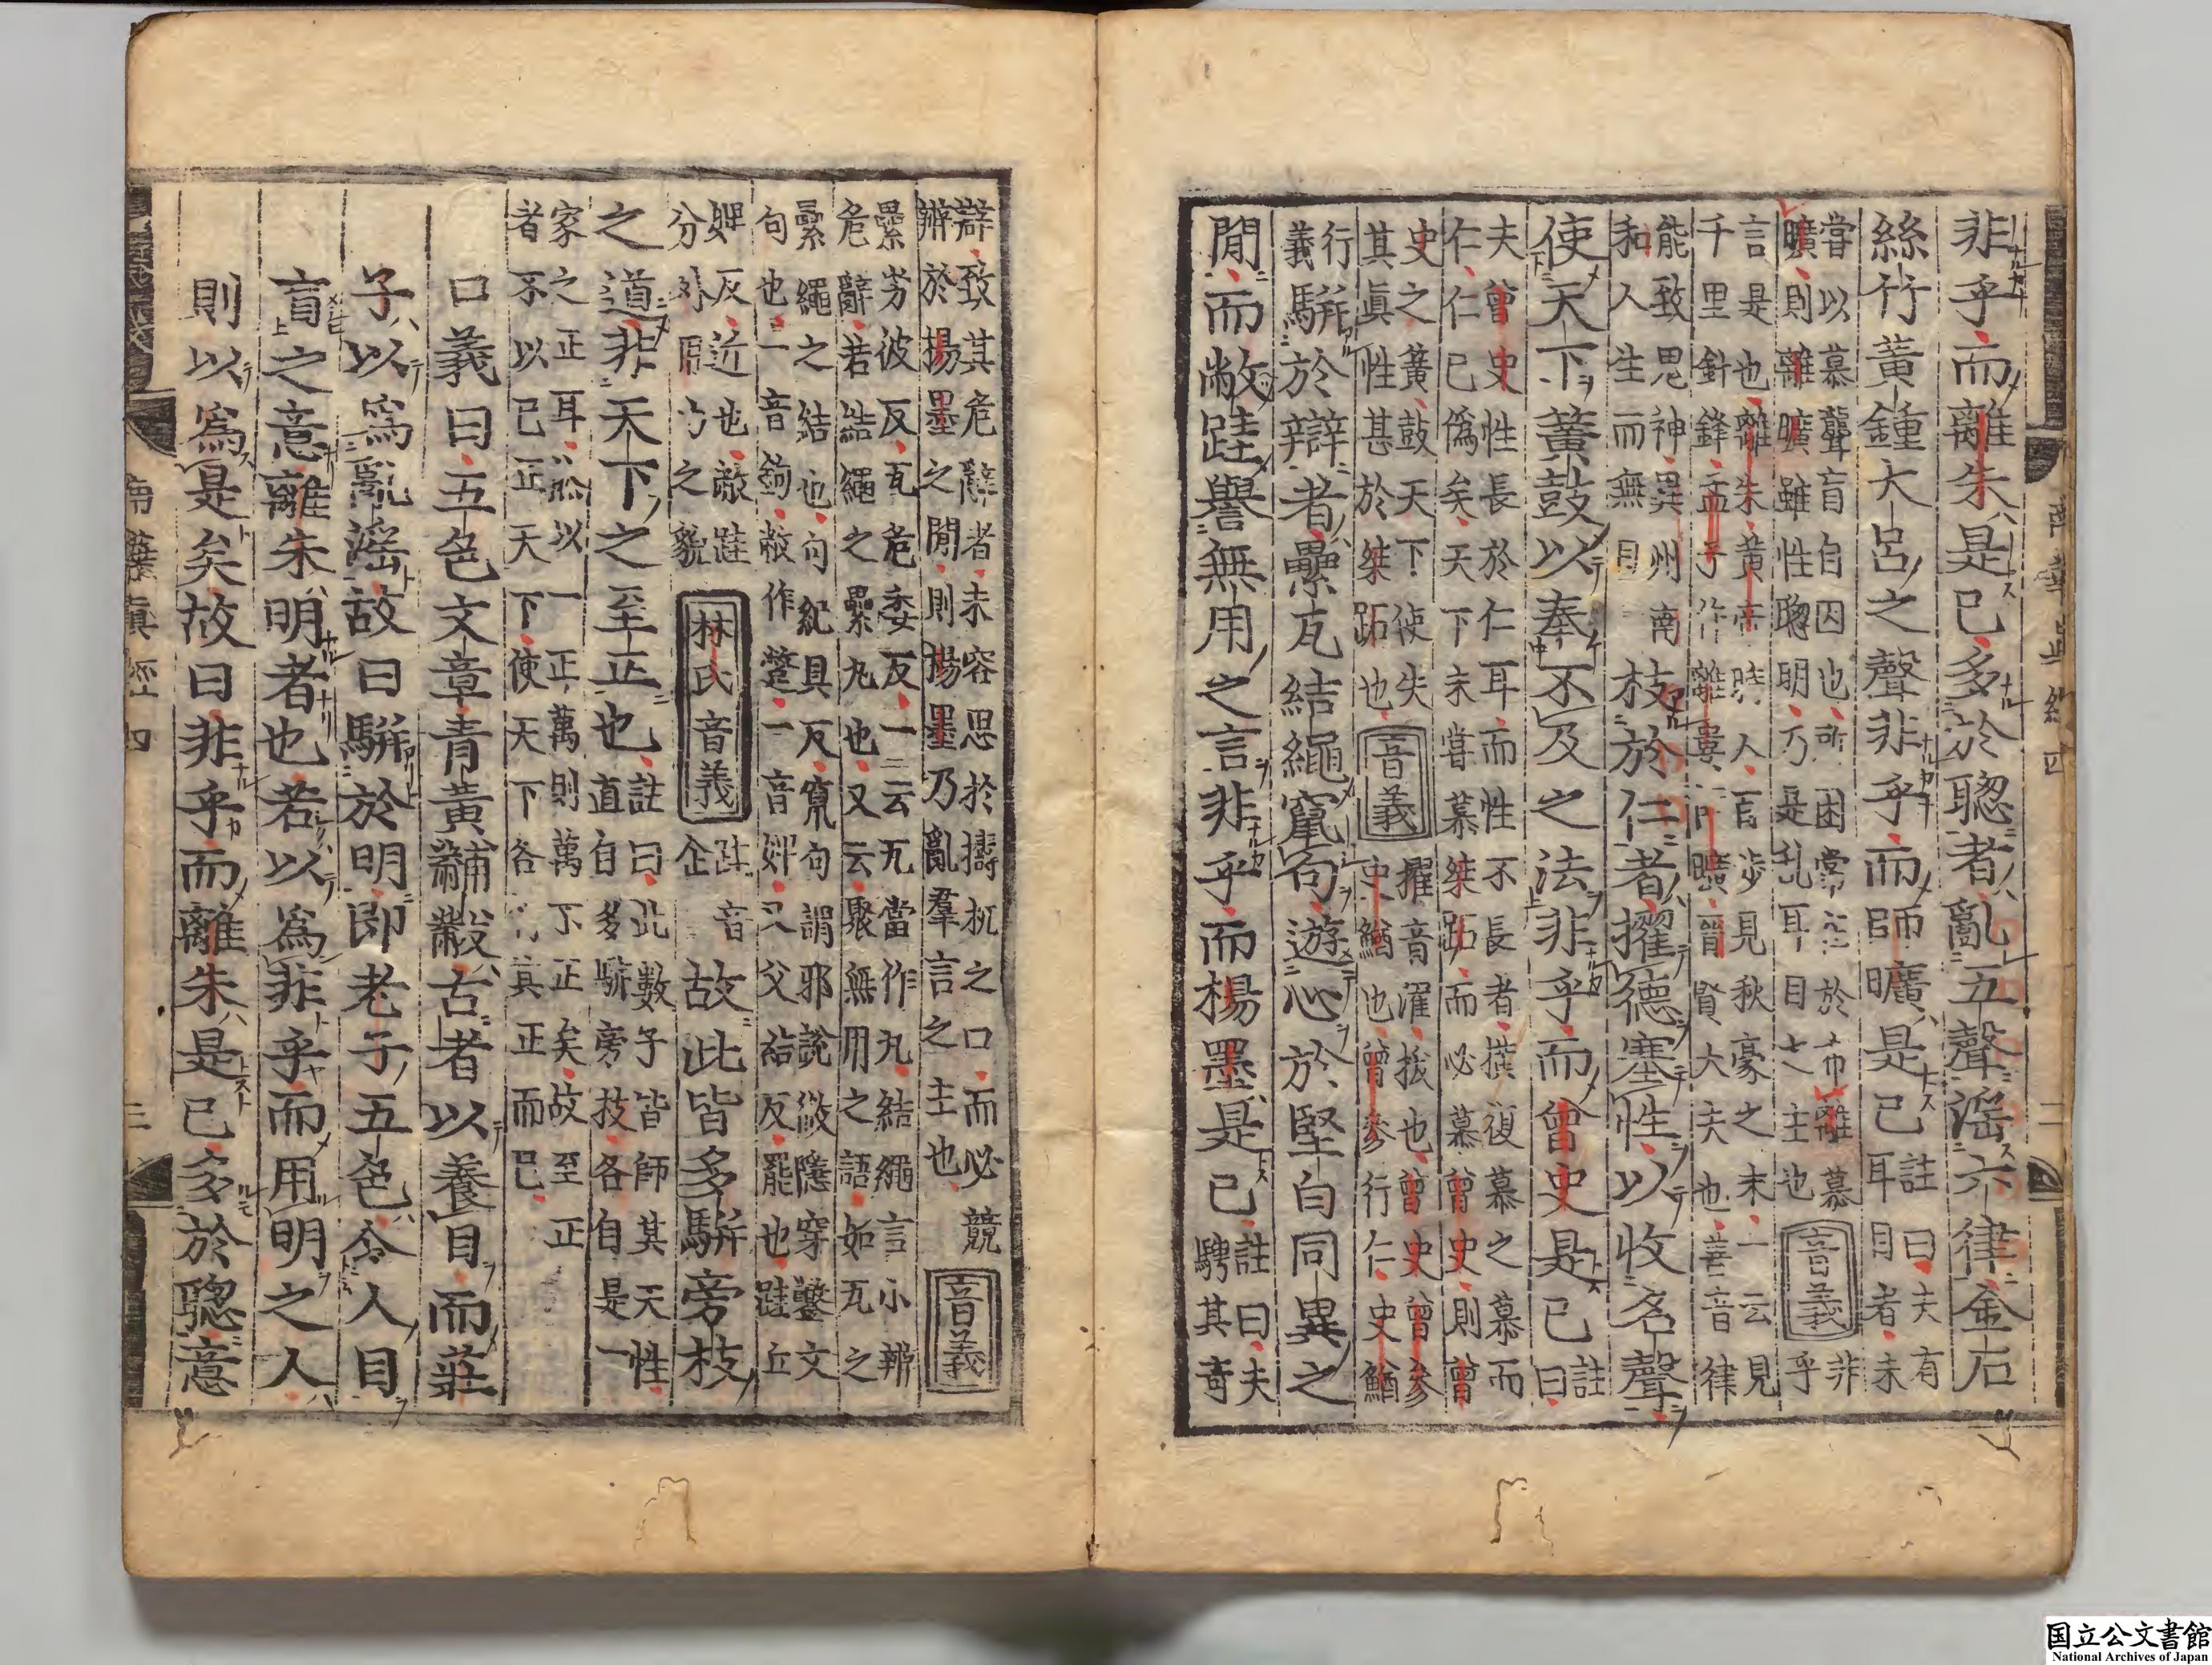 非乎而離朱是已多於聦者亂五聲滛六律金石
絲竹黃鍾大呂之聲非乎而師曠是已註曰夫有
耳目者未
嘗以慕聾盲自困也所困常在於希離慕
曠則離曠雖性聦明乃是乱耳目之主也音義非乎
言是也離朱黃帝時人百步見秋豪之末一云見
千里針鋒孟子作離婁師曠晉賢大夫也善音律
能致鬼神異州南
和人生而無目枝於仁者擢德塞性以收名聲
使天下簧鼓以奉不及之法非乎而曾史是已註
曰
夫曾史性長於仁耳而性不長者撗復慕之慕而
仁仁已偽矣天下未嘗慕桀跖而必慕曾史則曾
史之簧鼓天下使失
其眞性甚於桀跖也音義擢音濯拔也曾史曾參
史鰌也曾參行仁史鰌
行
義駢於辯者纍瓦結繩竄句遊心於堅白同異之
閒而敝跬譽無用之言非乎而楊墨是已註曰夫
騁其奇
辯致其危辭者未容思於擣杌之口而必競
辨於揚墨之閒則揚墨乃亂羣言之主也音義
纍劣彼反瓦危委反一云瓦當作丸結繩言小辨
危辭若結繩之纍丸也又云聚無用之語如瓦之
纍繩之結也句紀具反竄句謂邪說微隱穿鑿文
句也一音鉤敝作蹩一音婢又父結反罷也跬丘
婢反近也敝跬
分外用力之貌林氏音義跬音
企故此皆多駢旁枝
之道非天下之至正也註曰此數子皆師其天性
直自多駢旁技各自是一
家之正耳然以一正萬則萬不正矣故至正
者不以己正天下使天下各得其正而已
口義曰五色文章青黃黼黻古者以養目而莊
子以爲亂滛故曰駢於明即老子五色令人目
盲之意離朱明者也若以爲非乎而用明之人
則以爲是矣故曰非乎而離朱是已多於聦意
南華眞經四
三
南華眞經四
二
国立公文書館
National Archives of Japan